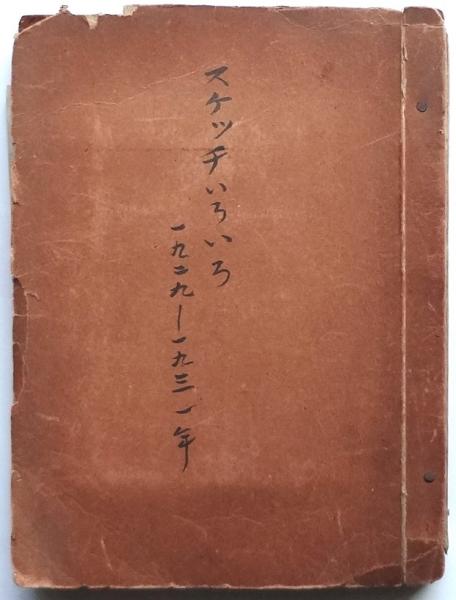 スケッチいろいろ
一九二九ー一九三一年